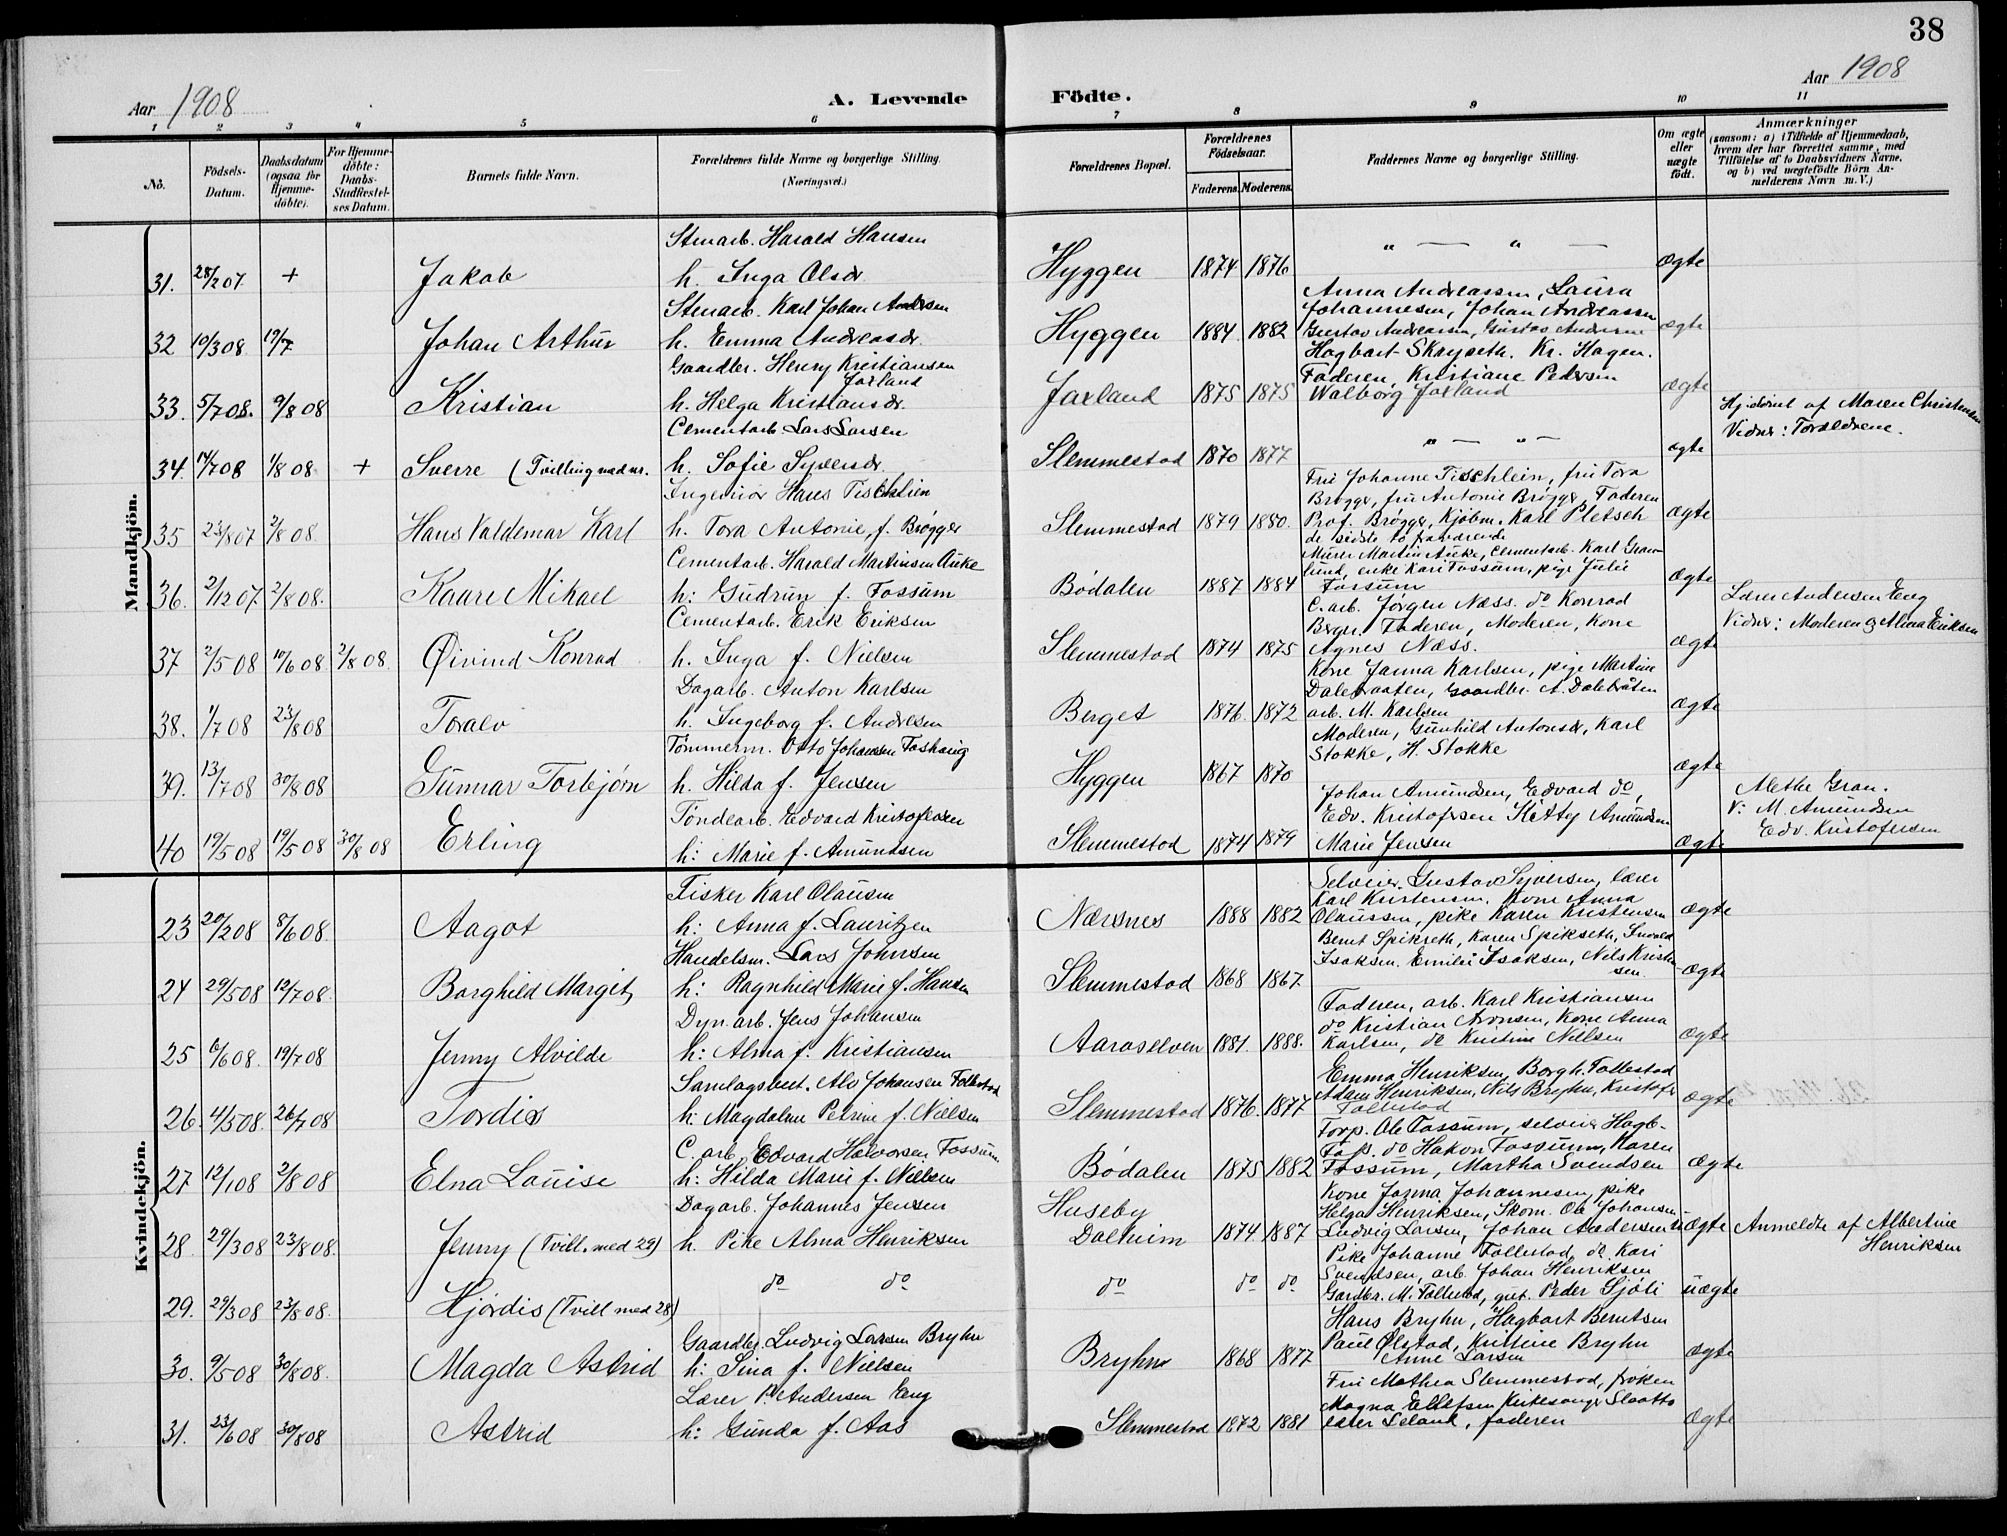 38
Aar 1908
A. Levende Födte.
Aar 1908
1 2 3 4 5 6 7 8 9 10 11
No.
Födsels-Datum.
Daabsdatum (ogsaa for Hjemme-döbte).
For Hjemme-döbte: Daabs-Stadfæstel-ses Datum.
Barnets fulde Navn.
Forældrenes fulde Navne og borgerlige Stilling. (Næringsvei.)
Forældrenes Bopæl.
Forældrenes Födselsaar.
Faderens. Moderens.
Faddernes Navne og borgerlige Stilling.
Om ægte eller uægte födt.
Anmærkninger
(saasom: a) i Tilfælde af Hjemmedaab, hvem der har forrettet samme, med Tilföielse af to Daabsvidners Navne, og b) ved uægtefödte Börn Anmelderens Navn m. V.)
Mandkjön.
Stenarb. Harald Hansen
31. 28/2 07. + Jakob h. Inga Olsdr. Hyggen 1874 1876 " — " — ægte
Stenarb. Karl Johan Andersen
Anna Andreassen, Laura
Johannesen, Johan Andreassen
32 10/3 08 19/7 Johan Arthur h. Emma Andreasdr. Hyggen 1884. 1882 Gustav Andreassen, Gustav Andersen ægte
Hagbart Skryseth. Kr. Hagen.
Gaardbr. Henry Kristiansen Jaxland
Faderen, Kristiane Pedersen
33. 5/7 08. 9/8 08 Kristian h. Helga Kristiansdr. Jaxland 1875 1875 Walborg Jaxland ægte
Cementarb. Lars Larsen
Hj.døbt af Maren Christensen
Vidner: Forældrene.
34. 14/7 08 1/8 08 + Sverre (Tvilling med nr. h. Sofie Syversdr. Slemmestod 1870 1877 " — " — ægte
Ingeniør Hans Tischlein
Fru Johanne Tischlein, fru Tora
Brøgger, fru Antonie Brøgger, Faderen
35 23/8 07 2/8 08. Hans Valdemar Karl h. Tora Antonie, f. Brøgger Slemmestod 1879 1880. Prof. Brøgger, Kjøbm. Karl Pletsch ægte
de sidste to fraværende
Cementarb. Harald Martinsen Auke
Murer Martin Auke, Cementarb. Karl Gran-
lund, enke Kari Fossum, pige Julie
36. 2/12 07. 2/8 08. Kaare Mikael h: Gudrun f. Fossum Bødalen 1887 1884 Fossum ægte
Cementarb. Erik Eriksen
C. arb. Jørgen Næss. do Konrad
Berger, Faderen, Moderen, Kone
Lærer Andersen Eng
Vidner: Moderen og Alma Eriksen
37 2/5 08 10/6 08 2/8 08. Øivind Konrad h. Inga f. Nielsen Slemmestod 1874 1875 Agnes Næss. ægte
Dagarb. Anton Karlsen
Kone Janna Karlsen, pige Martine
Dalebraaten, Gaardbr. A. Dalebråten
38. 1/7 08 23/8 08 Toralv h. Ingeborg f. Andresen Berget 1876. 1872 arb. M. Karlsen ægte
Tømmerm. Otto Johansen Toshaug
Moderen, Gunhild Antonsdr, Karl
Stokke, H. Stokke
39. 13/7 08 30/8 08 Gunnar Torbjørn h. Hilda f. Jensen Hyggen 1867 1870 ægte
Tøndearb. Edvard Kristofersen
Johan Amundsen, Edvard do,
Edv. Kristofersen Kitty Amundsen
Methe Gran.
V: M. Amundsen
Edv. Kristofersen
40 19/5 08 19/5 08 30/8 08 Erling h: Marie f. Amundsen Slemmestod 1874 1879 Marie Jensen ægte
Kvindekjön.
Fisker Karl Olausen
Selveier Gustav Syversen, lærer
Karl Kristensen. Kone Anna
23 20/2 08 8/6 08. Aagot h: Anna f. Lauritzen Nærsnes 1888 1882 Olaussen, pike Karen Kristensen ægte
Handelsm. Lars Johnsen
Bernt Spikseth, Karen Spikseth,
Isaksen. Emilie Isaksen, Nils Kristen-
sen
24 29/5 08 12/7 08. Borghild Margit h: Ragnhild Marie f. Hansen Slemmestod 1868 1867. ægte
Dyn. arb. Jens Johansen
Faderen, arb. Karl Kristiansen
do Kristian Aronsen, Kone Anna
25 10/6 08. 19/7 08 Jenny Alvilde h: Alma f. Kristiansen Aaroselven 1881. 1888. Karlsen, do Kristine Nilsen ægte
Samlagsbest. Alv Johansen Follestad
Emma Henriksen, Borgh. Follestad
Adam Henriksen, Nils Bryhn, Kristofer
26. 4/5 08. 26/7 08 Tordis h: Magdalene Petrine f. Nielsen Slemmestod 1876. 1877 Follestad ægte
C. arb. Edvard Halvorsen Fossum
Forp. Ole Fossum, selveier Hagb.
Fos. do Hakon Fossum, Karen
27 12/1 08 2/8 08 Elna Louise h: Hilda Marie f. Nielsen Bødalen 1875 1882 Fossum, Martha Svendsen ægte
Dagarb. Johannes Jensen
Huseby
Kone Janna Johannesen, pike
Helga Henriksen, Skom. Ole Johansen
28. 29/3 08 23/8 08. Jenny (Tvill. med 29) h. Pike Alma Henriksen Dalheim 1874 1887 Ludvig Larsen, Johan Andersen uægte Anmeldte af Albertine
Henriksen
Pike Johanne Follestad, do Kari
Svendsen, arb. Johan Henriksen
29. 29/3 08 23/8 08. Hjørdis (Tvill med 28) do do do do do Gardbr. M. Follestad, gut. Peder Sjøli uægte
Hans Bryhn, Hagbart Berntsen
Gaardbr. Ludvig Larsen Bryhn
Paul Ølstad, Kristine Bryhn
30. 9/5 08 30/8 08. Magda Astrid h: Sina f. Nielsen Bryhn 1868 1877 Anne Larsen ægte
Lærer P. Andersen Eng
Fru Mathea Slemmestad, frøken
Magna Ellefsen Kirkesanger Slaatto
31. 23/6 08 30/8 08 Astrid h: Gunda f. Aas Slemmestod 1872 1881 lærer Leland, faderen ægte